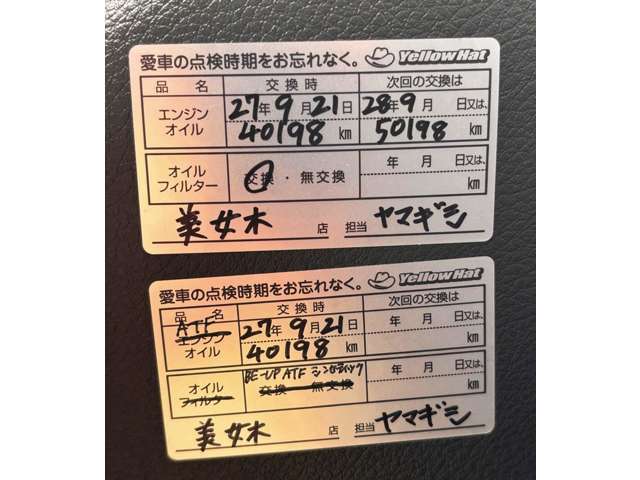 愛車の点検時期をお忘れなく。 YellowHat
品名 交換時 次回の交換は
エンジンオイル 27年9月21日 28年9月 日又は、
40198km 50198km
オイルフィルター 交換・無交換 年 月 日又は、
km
美女木 店 担当 ヤマギシ
愛車の点検時期をお忘れなく。 YellowHat
品名 交換時 次回の交換は
ATF エンジンオイル 27年9月21日 年 月 日又は、
40198km km
BE-UP ATF シンセティック
オイルフィルター 交換 無交換 年 月 日又は、
km
美女木 店 担当 ヤマギシ